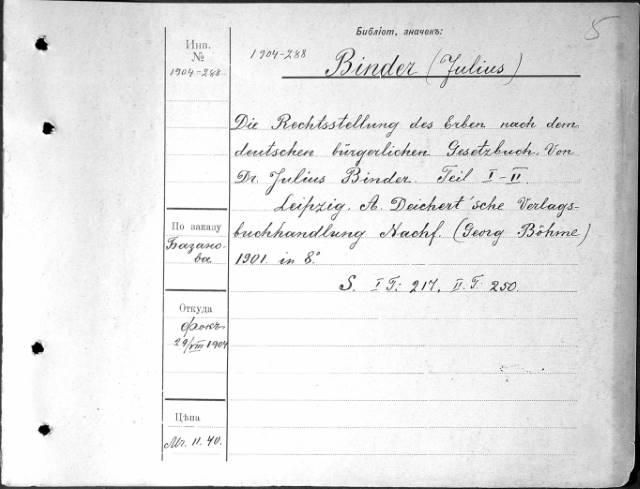 Библіот. значокъ:
5
Инв.
№
1904-288.
1904-288
Binder (Julius)
Die Rechtsstellung des Erben nach dem
deutschen bürgerlichen Gesetzbuch. Von
Dr. Julius Binder. Teil I-II.
Leipzig. A. Deichert'sche Verlags-
buchhandlung Nachf. (Georg Böhme)
1901. in 8°
S. I T: 217. II. T. 250.
По заказу
Базано-
ва.
Откуда
Фокъ
29/VIII 1904
Цѣна
Mr. 11.40.